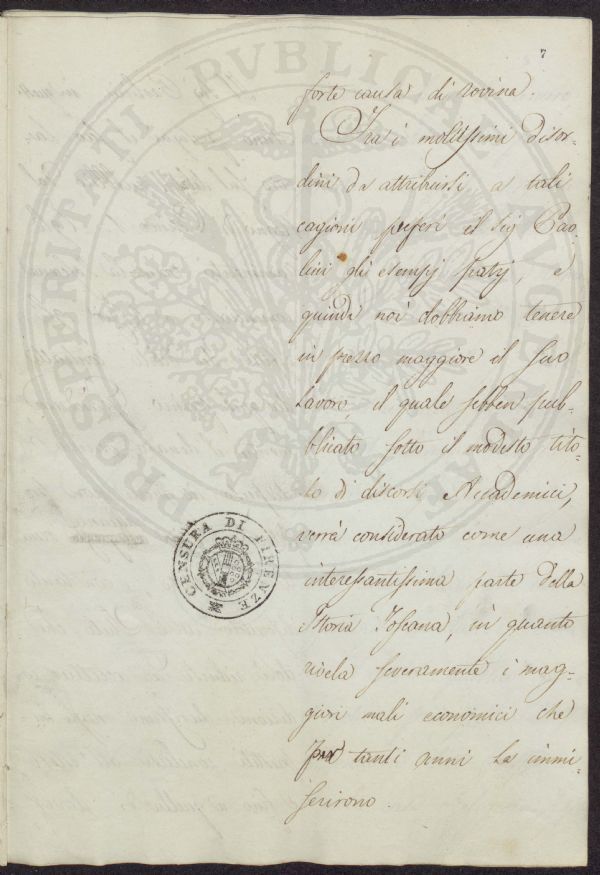 7
forte causa di rovina.
Fra i moltissimi disor-
dini da attribuirsi a tali
cagioni preferì il Sig Pao-
lini gli esempj patrj, e
quindi noi dobbiamo tenere
in prezzo maggiore il suo
lavoro, il quale sebben pub-
blicato sotto il modesto tito-
lo di discorsi Accademici,
verrà considerato come una
interessantissima parte della
Storia Toscana, in quanto
rivela severamente i mag-
giori mali economici che
per tanti anni la immi-
serirono.
CENSURA DI FIRENZE
PROSPERITATI PUBLICAE AUGENDAE